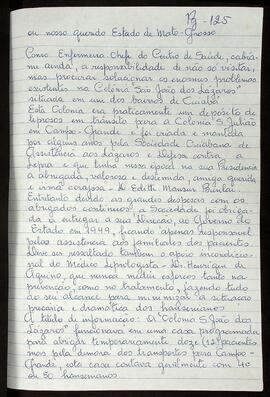 Pg - 125
ou nosso querido Estado de Mato-Grosso
Como Enfermeira-chefe do Centro de Saúde, cabia-
me ainda, a responsabilidade de não só visitar,
mas procurar solucionar os enormes problemas
existentes na Colônia São João dos Lázaros"
situada em um dos bairros de Cuiabá
Esta Colônia era praticamente um depósito de
leprosos em trânsito para a Colônia S. Julião
em Campo-Grande e foi criada e mantida
por alguns anos pela Sociedade Cuiabana de
Assistência aos Lázaros e Defesa contra a
Lepra e que tinha nessa época na sua Presidência
a abnegada, valorosa e destemida, amiga querida
e irmã corajosa - D. Edith Mansur
Entretanto devido as grandes despesas com os
abrigados contínuos, a Sociedade foi obriga-
da a entregar a sua direção, ao Governo do
Estado em 1949, ficando apenas responsável
pelas assistência aos familiares dos pacientes.
Deve ser ressaltado também o apoio incondicio-
nal do Médico Leprologista - Dr. Henrique de
Aquino, que nunca mediu esforços tanto na
prevenção, como no tratamento, fazendo tudo
ao seu alcance para minimizar a situação
precária e dramática dos hansenianos
A título de informação: A "Colônia S. João dos
Lázaros" funcionava em uma casa programada
para abrigar temporariamente doze (12) pacientes
mas pela demora dos transportes para Campo-
Grande, esta casa contava geralmente com 40
ou 50 hansenianos